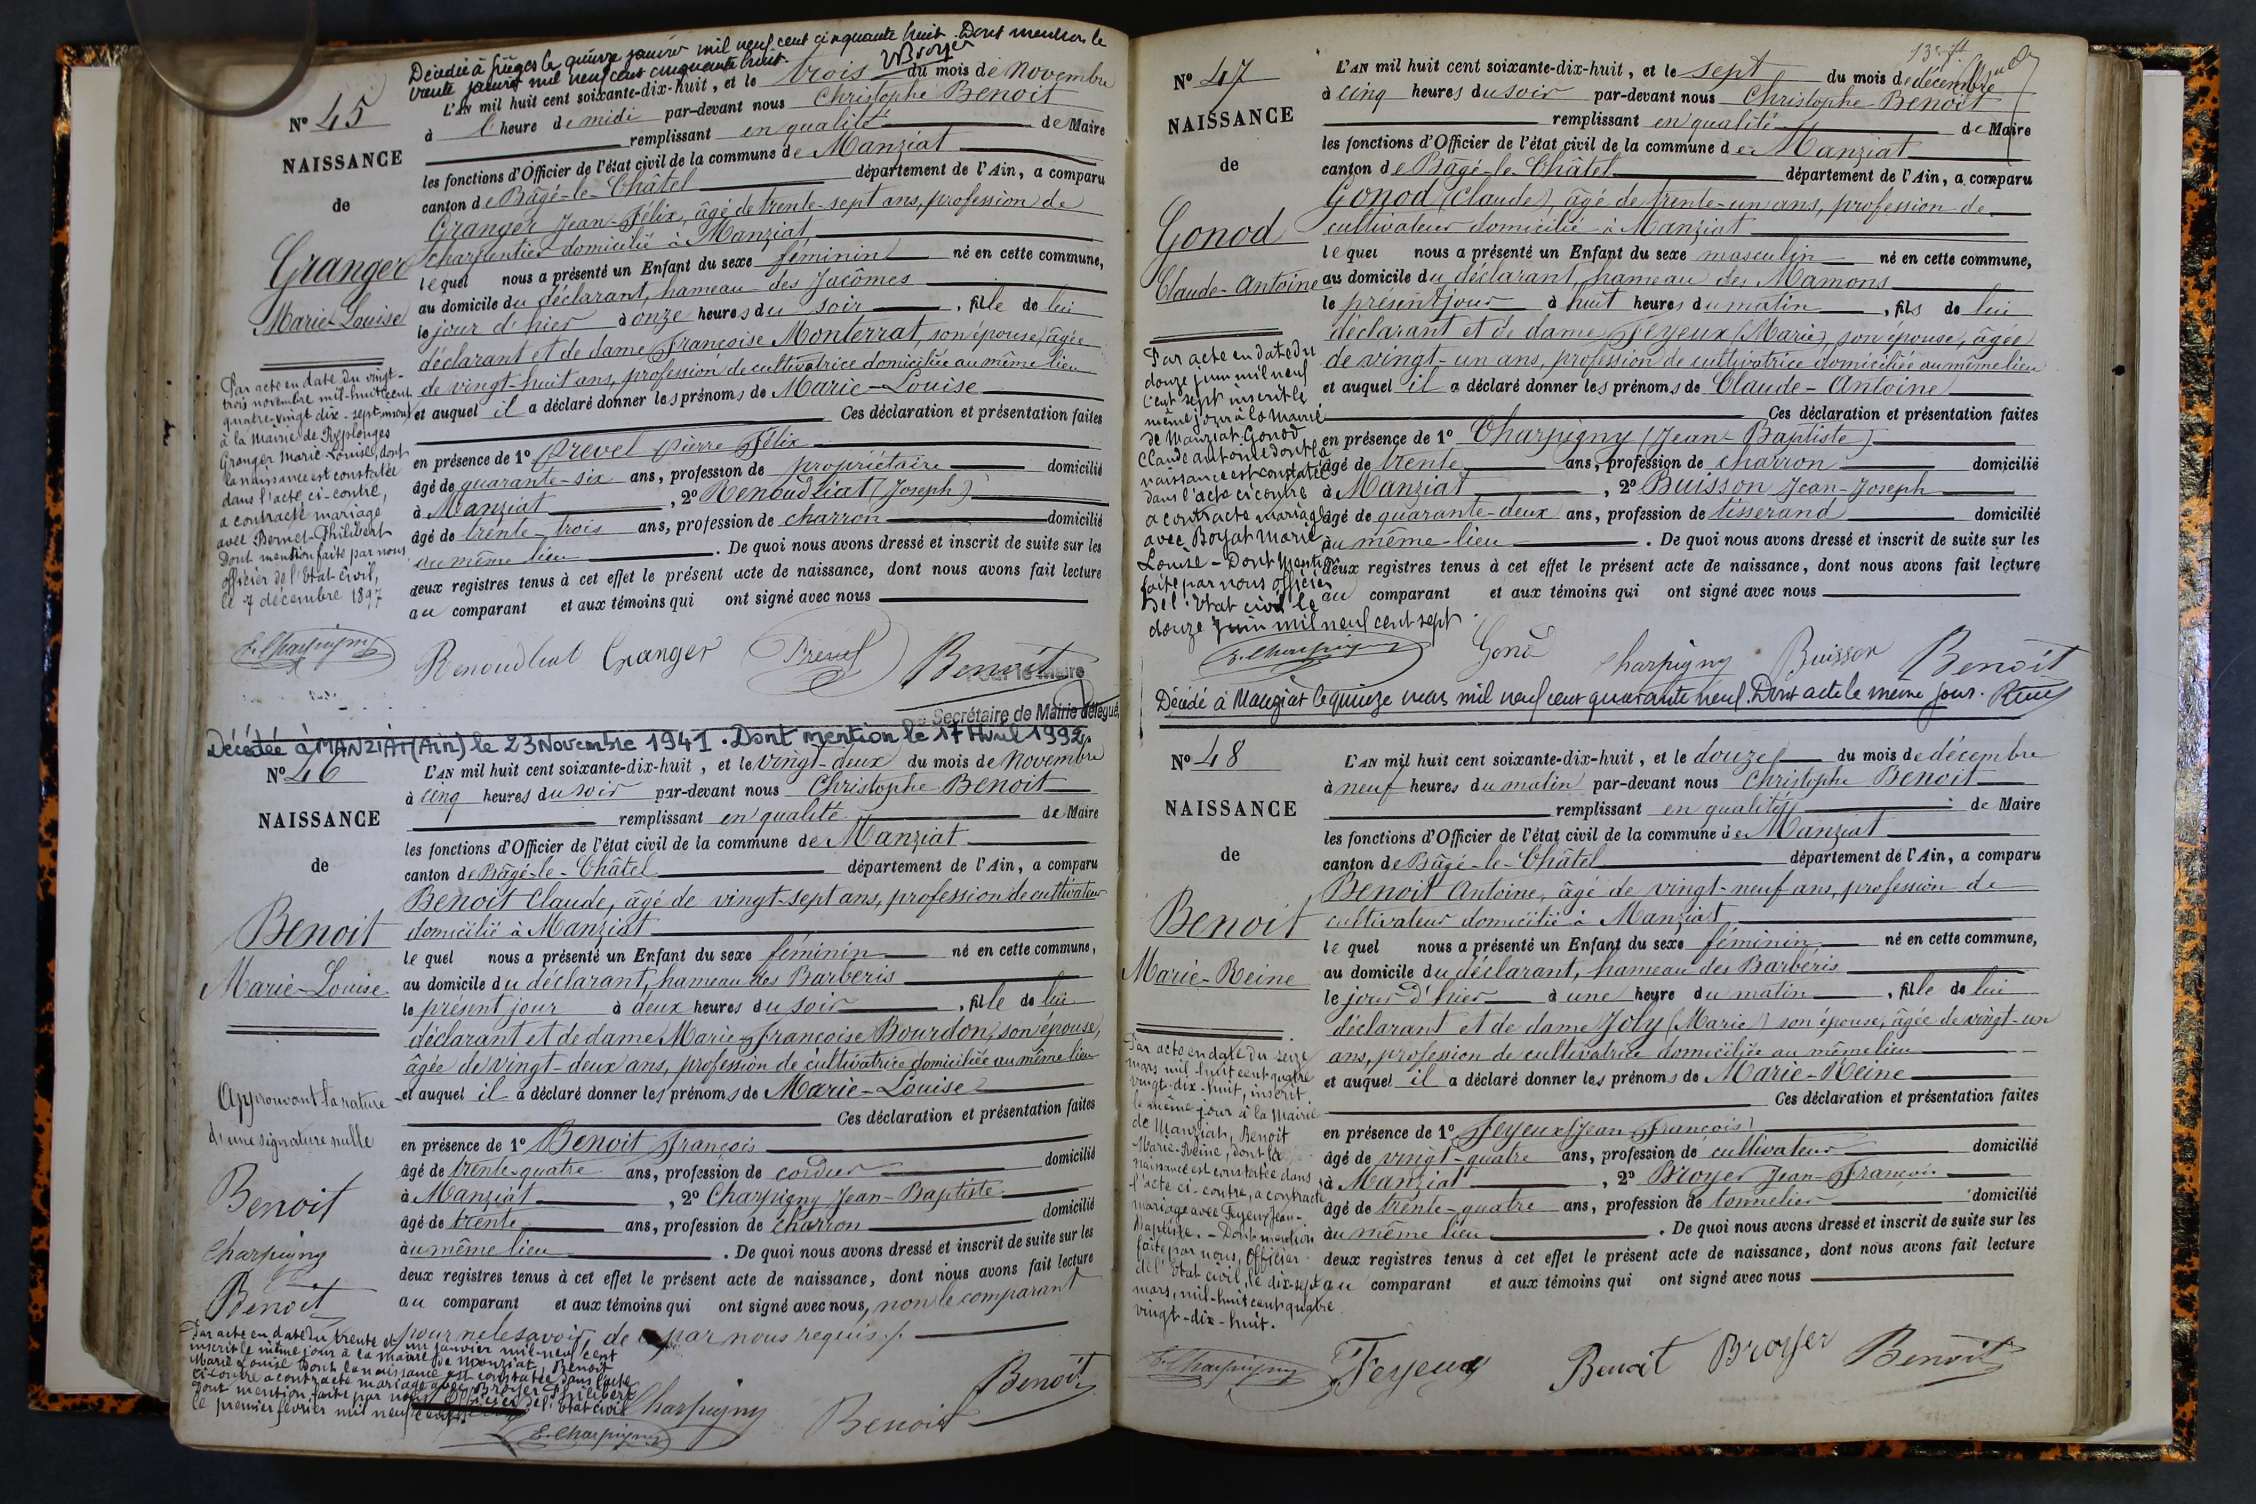 Décédée à Fréges le quinze janvier mil neuf cent cinquante huit. Dont mention le
trente janvier mil neuf cent cinquante huit.
WBroyer
N° 45
NAISSANCE
de
Granger
Marie-Louise
L'AN mil huit cent soixante-dix-huit, et le trois du mois de Novembre
à l'heure de midi par-devant nous Christophe Benoit
remplissant en qualité de Maire
les fonctions d'Officier de l'état civil de la commune de Manziat
canton de Bâgé-le-Châtel département de l'Ain, a comparu
Granger Jean-Félix, âgé de trente-sept ans, profession de
charpentier domicilié à Manziat
lequel nous a présenté un Enfant du sexe féminin né en cette commune,
au domicile du déclarant, hameau des Jacômes
le jour d'hier à onze heures du soir, fille de lui
déclarant et de dame Françoise Monterrat, son épouse, âgée
de vingt-huit ans, profession de cultivatrice domiciliée au même lieu
et auquel il a déclaré donner les prénoms de Marie-Louise
Ces déclaration et présentation faites
en présence de 1° Prevel Pierre Félix
âgé de quarante-six ans, profession de propriétaire domicilié
à Manziat, 2° Renoud liat (Joseph)
âgé de trente-trois ans, profession de charron domicilié
au même lieu. De quoi nous avons dressé et inscrit de suite sur les
deux registres tenus à cet effet le présent acte de naissance, dont nous avons fait lecture
au comparant et aux témoins qui ont signé avec nous
Par acte en date du vingt-
trois novembre mil-huit cent
quatre-vingt dix-sept inscrit
à la Mairie de Replonges
Granger Marie-Louise, dont
la naissance est constatée
dans l'acte ci-contre,
a contracté mariage
avec Bernet-Philibert
Dont mention faite par nous
officier de l'Etat-civil,
le 7 décembre 1897
E. Charpigny
Renoudliat Granger Prevel Benoit
Pour le Maire
Secrétaire de Mairie délégué,
Décédée à MANZIAT (Ain) le 23 Novembre 1941. Dont mention le 17 Avril 1992.
N° 46
NAISSANCE
de
Benoit
Marie-Louise
L'AN mil huit cent soixante-dix-huit, et le vingt-deux du mois de Novembre
à cinq heures du soir par-devant nous Christophe Benoit
remplissant en qualité de Maire
les fonctions d'Officier de l'état civil de la commune de Manziat
canton de Bâgé-le-Châtel département de l'Ain, a comparu
Benoit Claude, âgé de vingt-sept ans, profession de cultivateur
domicilié à Manziat
lequel nous a présenté un Enfant du sexe féminin né en cette commune,
au domicile du déclarant, hameau des Barberis
le présent jour à deux heures du soir, fille de lui
déclarant et de dame Marie Françoise Bourdon, son épouse,
âgée de vingt-deux ans, profession de cultivatrice domiciliée au même lieu
et auquel il a déclaré donner les prénoms de Marie-Louise
Ces déclaration et présentation faites
en présence de 1° Benoit François
âgé de trente-quatre ans, profession de cordier domicilié
à Manziat, 2° Charpigny Jean-Baptiste
âgé de trente ans, profession de charron domicilié
au même lieu. De quoi nous avons dressé et inscrit de suite sur les
deux registres tenus à cet effet le présent acte de naissance, dont nous avons fait lecture
au comparant et aux témoins qui ont signé avec nous, non le comparant
pour ne le savoir, de ce par nous requis./.
Approuvant la rature
d'une signature nulle
Benoit
Charpigny
Benoit
Par acte en date du trente et un janvier mil-neuf cent
inscrit le même jour à la mairie de Manziat, Benoit
Marie Louise dont la naissance est constatée dans l'acte
ci-contre a contracté mariage avec Broyer Philibert
Dont mention faite par nous officier de l'Etat civil
le premier février mil neuf cent
Charpigny Benoit Benoit
E. Charpigny
N° 47
NAISSANCE
de
Gonod
Claude-Antoine
L'AN mil huit cent soixante-dix-huit, et le sept du mois de décembre
à cinq heures du soir par-devant nous Christophe Benoit
remplissant en qualité de Maire
les fonctions d'Officier de l'état civil de la commune de Manziat
canton de Bâgé-le-Châtel département de l'Ain, a comparu
Gonod (Claude), âgé de trente-un ans, profession de
cultivateur domicilié à Manziat
lequel nous a présenté un Enfant du sexe masculin né en cette commune,
au domicile du déclarant, hameau des Mamons
le présent jour à huit heures du matin, fils de lui
déclarant et de dame Feyeux (Marie), son épouse, âgée
de vingt-un ans, profession de cultivatrice domiciliée au même lieu
et auquel il a déclaré donner les prénoms de Claude-Antoine
Ces déclaration et présentation faites
en présence de 1° Charpigny (Jean-Baptiste)
âgé de trente ans, profession de charron domicilié
à Manziat, 2° Buisson Jean-Joseph
âgé de quarante-deux ans, profession de tisserand domicilié
au même-lieu. De quoi nous avons dressé et inscrit de suite sur les
deux registres tenus à cet effet le présent acte de naissance, dont nous avons fait lecture
au comparant et aux témoins qui ont signé avec nous
Par acte en date du
douze juin mil neuf
cent sept inscrit le
même jour à la mairie
de Manziat Gonod
Claude antoine dont la
naissance est constatée
dans l'acte ci contre
a contracté mariage
avec Boyat Marie
Louise - Dont mention
faite par nous officier
de l'Etat civil le
douze juin mil neuf cent sept.
E. Charpigny
Gono Charpigny Buisson Benoit
Décédé à Manziat le quinze mars mil neuf cent quarante neuf. Dont acte le même jour.
N° 48
NAISSANCE
de
Benoit
Marie-Reine
L'AN mil huit cent soixante-dix-huit, et le douze du mois de décembre
à neuf heures du matin par-devant nous Christophe Benoit
remplissant en qualité de Maire
les fonctions d'Officier de l'état civil de la commune de Manziat
canton de Bâgé-le-Châtel département de l'Ain, a comparu
Benoit Antoine, âgé de vingt-neuf ans, profession de
cultivateur domicilié à Manziat
lequel nous a présenté un Enfant du sexe féminin né en cette commune,
au domicile du déclarant, hameau des Barbéris
le jour d'hier à une heure du matin, fille de lui
déclarant et de dame Joly (Marie) son épouse, âgée de vingt-un
ans, profession de cultivatrice domiciliée au même lieu
et auquel il a déclaré donner les prénoms de Marie-Reine
Ces déclaration et présentation faites
en présence de 1° Feyeux (Jean François)
âgé de vingt-quatre ans, profession de cultivateur domicilié
à Manziat, 2° Broyer Jean-François
âgé de trente-quatre ans, profession de tonnelier domicilié
au même lieu. De quoi nous avons dressé et inscrit de suite sur les
deux registres tenus à cet effet le présent acte de naissance, dont nous avons fait lecture
au comparant et aux témoins qui ont signé avec nous
Par acte en date du seize
mars mil-huit cent quatre
vingt-dix-huit, inscrit
le même jour à la Mairie
de Manziat, Benoit
Marie-Reine, dont la
naissance est constatée dans
l'acte ci-contre, a contracté
mariage avec Feyeux Jean-
Baptiste. - Dont mention
faite par nous, Officier
de l'Etat civil, le dix-sept
mars, mil-huit cent quatre
vingt-dix-huit.
E. Charpigny
Feyeux Benoit Broyer Benoit